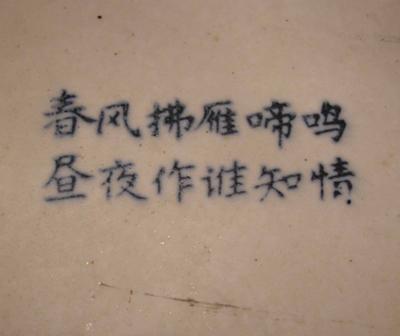 春风拂雁啼鸣
昼夜作谁知情